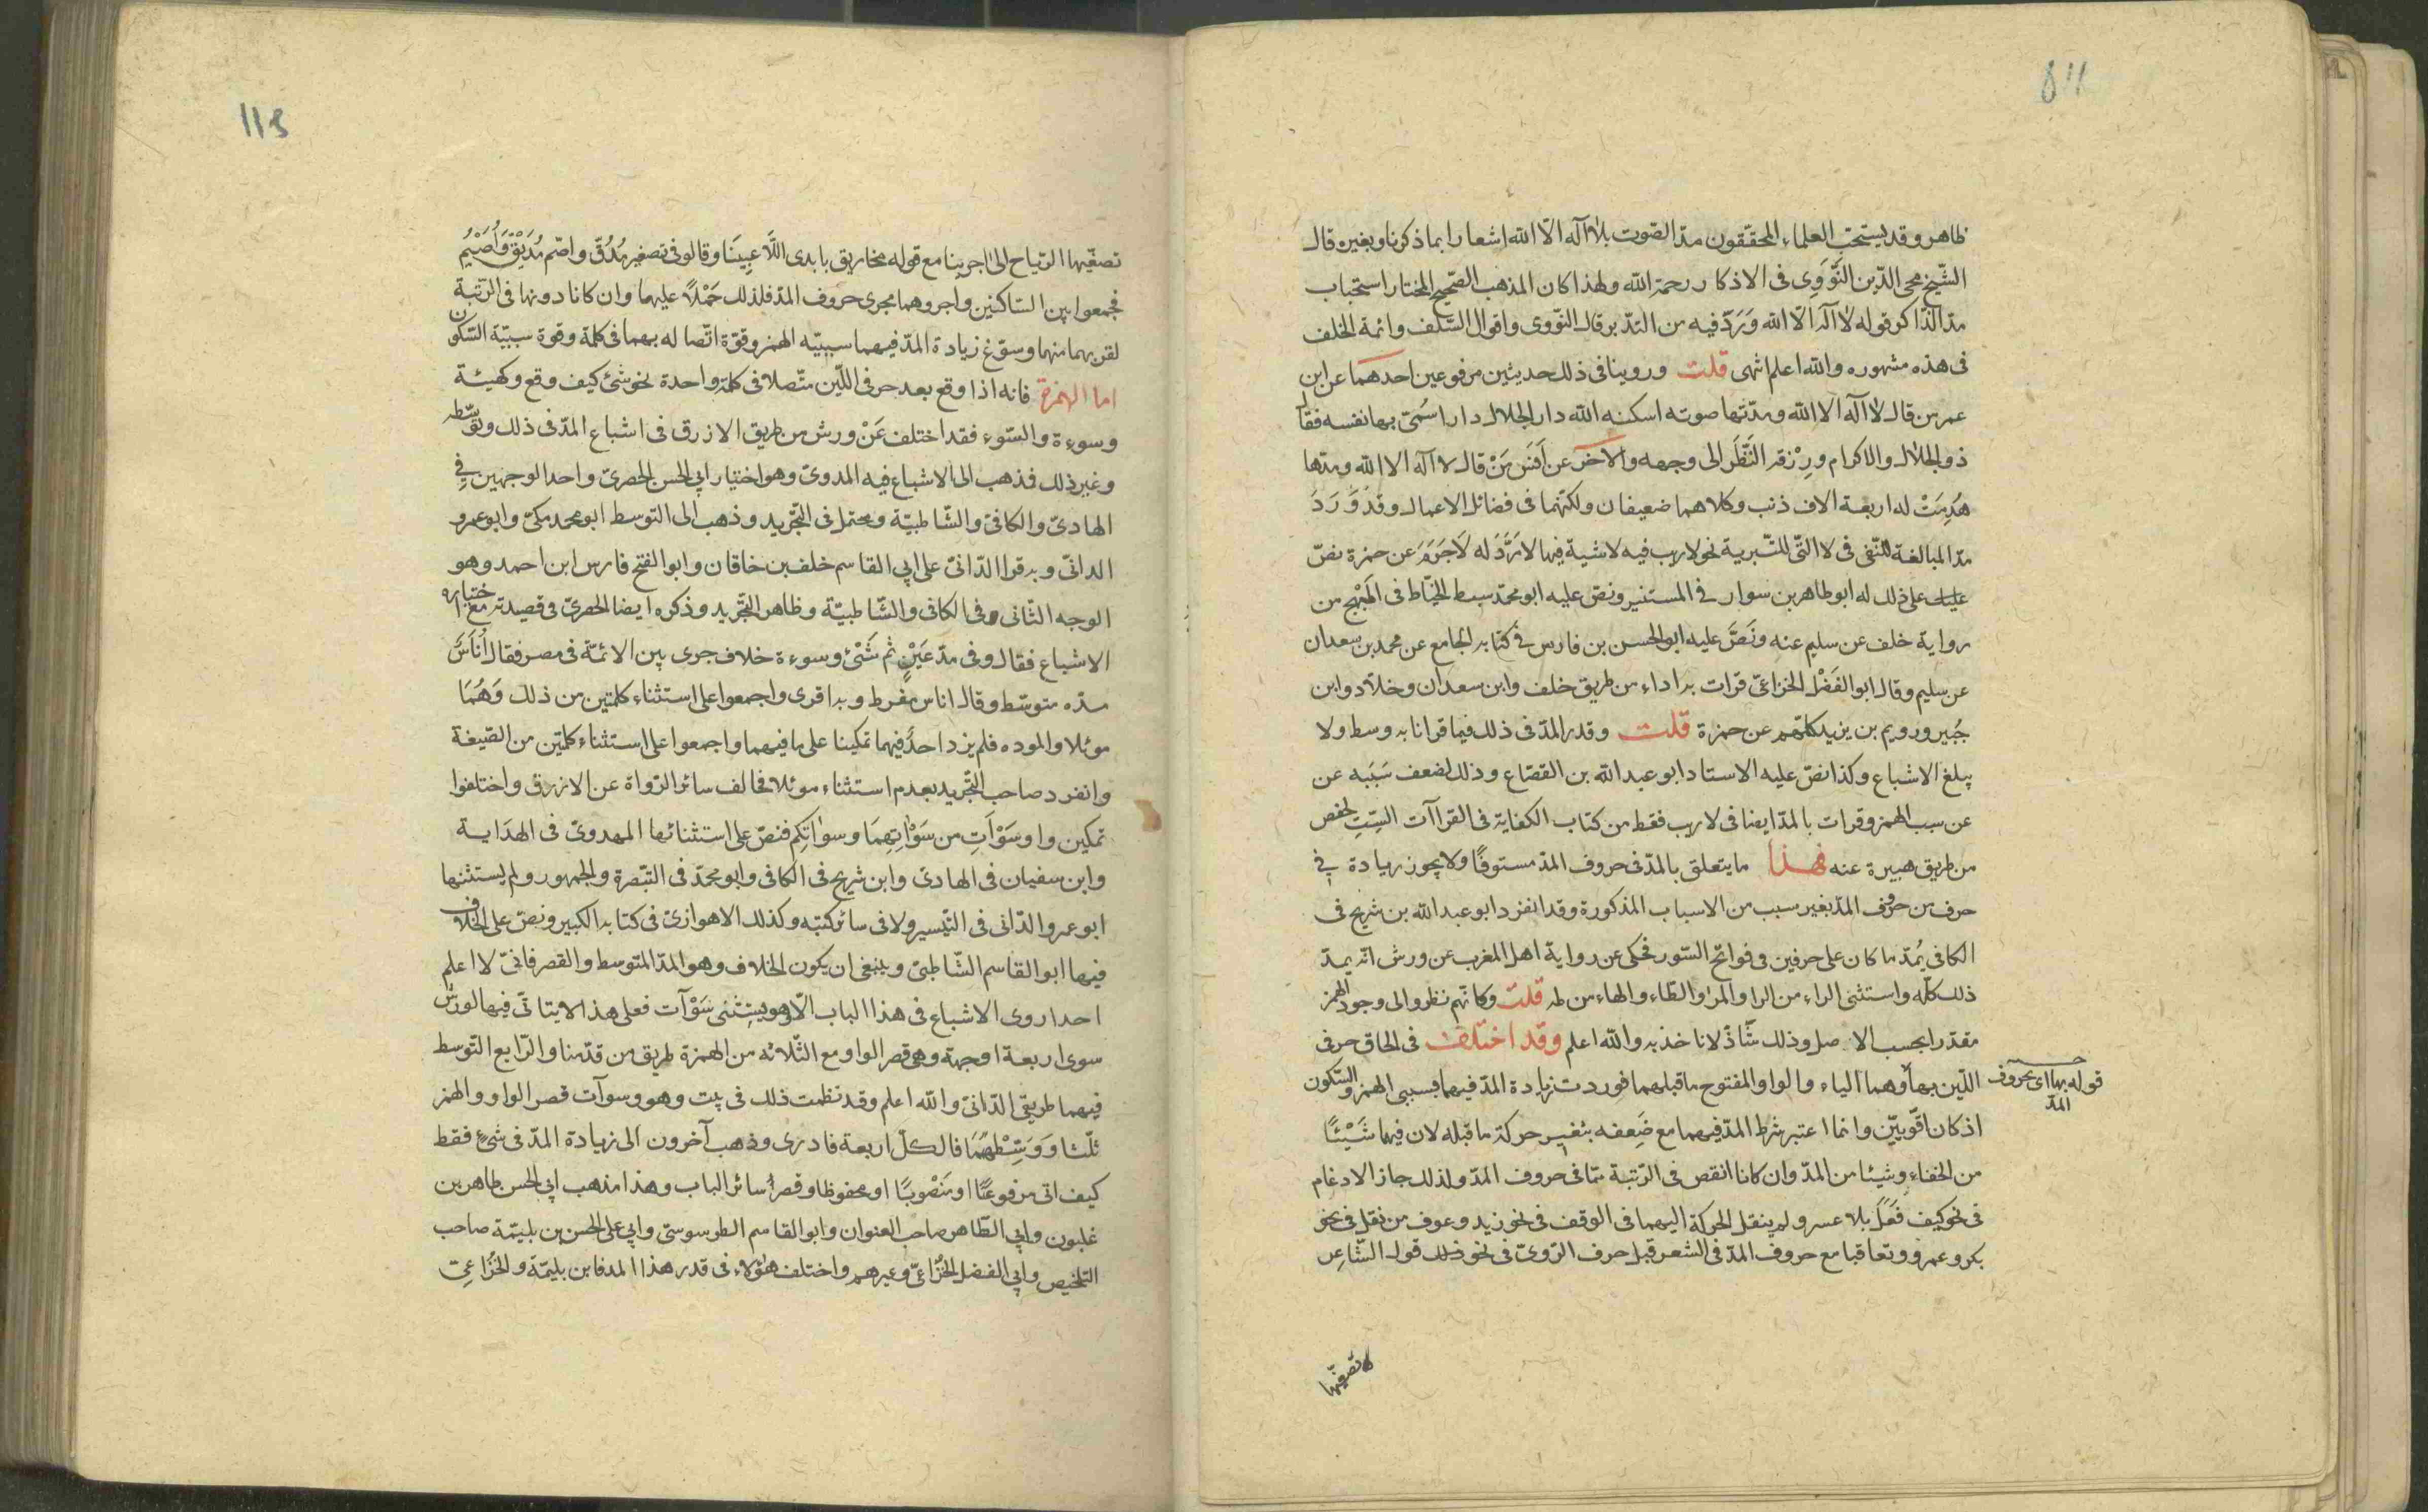 ظاهر وقد يستحبّ العلماء المحققون مدّ الصّوت بلا اله الا الله اشعارا بما ذكرنا وبغيره قال
الشّيخ محى الدّين النَّوَوِى فى الاذكار رحمه الله ولهذا كان المذهب الصّحيح المختار استحباب
مدّ الذّاكر قوله لا اله الا الله وَرَدّ فيه من التدّبر قال النّووى واقوال السّلف وائمة الخلف
فى هذه مشهوره والله اعلم انتهى قلت وروينا فى ذلك حديثين مرفوعين احدهما عن ابن
عمر من قال لا اله الا الله ومدّ بها صوته اسكنه الله دار الجلال دارا سُمّى بها نفسه فقال
ذو الجلال والاكرام ورزقه النَّظَر الى وجهه والآخر عن انس مَنْ قال لا اله الا الله ومدّها
هُدِمَتْ له اربعة الاف ذنب وكلاهما ضعيفان ولكنّهما فى فضائل الاعمال وقد وَرَدَ
مدّ المبالغة للنّفى فى لا التّى للتّبرية نحو لا ريب فيه لا شية فيها لا مَرَدَّ له لَا جَرَمَ عن حمزة نصّ
على ذلك له ابو طاهر بن سوار فى المستنير ونصّ عليه ابو محمّد سبط الخيّاط فى المُبْهِج من
رواية خلف عن سليم عنه ونَصَّ عليه ابو الحسن بن فارس فى كتابه الجامع عن محمد بن سعدان
عن سليم وقال ابو الفَضْل الخزاعىّ قرات به اداء من طريق خلف وابن سعدان وخلّاد وابن
جُبير ورويم بن يزيد كلّهم عن حمزة قلت وقدر المدّ فى ذلك فيما قرانا به وسط ولا
يبلغ الاشباع وكذا نصّ عليه الاستاد ابو عبد الله بن القصّاع وذلك لضعف سَبَبه عن
عن سبب الهمز وقرات بالمدّ ايضا فى لا ريب فقط من كتاب الكفاية فى القراآت السِتِ لحفص
من طريق هبيرة عنه فهذا ما يتعلق بالمدّ فى حروف المدّ مستوفًا ولا يجوز زيادة فى
حرف من حروف المدّ بغير سبب من الاسباب المذكورة وقد انفرد ابو عبد الله بن شريح فى
الكافى بمُدّ ما كان على حرفين فى فواتح السّور فحكى عن رواية اهل المغرب عن ورش انّه يمدّ
ذلك كلّه واستثنى الراء من الرا والمرا والطّاء والهاء من طه قلت وكانّهم نظروا الى وجود الهمز
مقدّرا بحسب الاصل وذلك شَاذّ لا ناخذ به والله اعلم وقد اختلف فى الحاق حرفى
اللّين بهما وهما الياء والواو المفتوح ما قبلهما فوردت زيادة المدّ فيهما بسببى الهمز والسّكون
قوله بهما اى بحروف
المدّ
اذ كانا قويّين وانما اعتبر شرط المدّ فيهما مع ضَعفه بتغيير حركة ما قبله لان فيهما شَيْئًا
من الخفاءِ وشيئا من المدّ وان كانا انقص فى الرّتبة ممّا فى حروف المدّ ولذلك جاز الادغام
فى نحو كيف فَعَلَ بلا عسر ولم ينقل الحركة اليهما فى الوقف فى نحو زيد وعوف من نقل فى نحو
بكر وعمرو وتعاقبا مع حروف المدّ فى الشعر قبل حرف الرّوىّ فى نحو قول الشّاعِر
تصفّقها
113
تصفّيها الرّياح الى اجرينا مع قوله مخاريق بايدى اللَّاعِبِينَا وقالوا فى تصغير مُدُقّ واصّم مُدَيْقّ وَاُصَيْمّ
فجمعوا بين السّاكنين واجروهما مجرى حروف المدّ فلذلك حَمْلًا عليها وان كانا دونها فى الرّتبة
لقربهما منها وسوّغ زيادة المدّ فيهما سببيّه الهمز وقوّة اتّصاله بهما فى كلمة وقوة سببيّة السّكون
اما الهمزة فانه اذا وقع بعد حرفى اللّين متّصلا فى كلمة واحدة نحو شئ كيف وقع وكهيئة
وسوءة والسّوء فقد اختلف عَنْ ورش من طريق الازرق فى اشباع المدّ فى ذلك وتوسّطه
وغير ذلك فذهب الى الاشباع فيه المدوىّ وهو اختيار ابى الحسن الحصرىّ واحد الوجهين فِى
الهادىّ والكافىّ والشّاطبيّة ومحتمل فى التّجريد وذهب الى التوسط ابو محمد مكىّ وابو عمرو
الدانىّ وبه قرا الدّانىّ على ابى القاسم خلف بن خاقان وابو الفتح فارس ابن احمد وهو
الوجه الثّانى فى الكافى والشّاطبيّة وظاهر التّجريد وذكره ايضا الحصرىّ فى قصيدته مع اختياره
الاشباع فقال وفى مدّ عَيْنٍ ثم شَىْئٍ وسوءة خلاف جرى بين الائمّة فى مصر فقال اُنَاسٌ
مدّه متوسّط وقال اناس مفرط وبه اقرى واجمعوا على استثناء كلمتين من ذلك وَهُمَا
موئلا والموده فلم يزد احدٌ فيهما تمكينا على ما فيهما واجمعوا على استثناء كلمتين من الصّيغة
وانفرد صاحب التّجريد بعدم استثناء موئلا فخالف سائر الرّواة عن الازرق واختلفوا
تمكين واو سَوْآتِ من سَوْاتِهِمَا وسوٰاتكِم فنصّ على استثنائها المهدوىّ فى الهدَاية
وابن سفيان فى الهادىّ وابن شريح فى الكافى وابو محمّد فى التّبصرة والجمهور ولم يستثنها
ابو عمرو الدّانى فى التّيسير ولا فى سائر كتبه وكذلك الاهوازىّ فى كتابه الكبير ونصّ على الخلاف
فيها ابو القاسم الشّاطبىّ وينبغى ان يكون الخلاف وهو المدّ المتوسط والقصر فانىّ لا اعلم
احدا روى الاشباع فى هذا الباب الّا وهو يستثنى سَوْآت فعلى هذا لا يتاتّى فيها لورش
سوى اربعة اوجهة وهى قصر الواو مع الثّلاثه من الهمزة طريق من قدّمنا والرّابع التّوسط
فيهما طريقىّ الدّانىّ والله اعلم وقد نظمت ذلك فى بيت وهو وسوآت قصر الواو والهمز
ثلّثا وَوَسِّطْهُمَا فالكلّ اربعة فادرى وذهب آخرون الى زيادة المدّ فى شئٍ فقط
كيف اتى مرفوعًا او مَنْصُوبًا او محفوظا وقصر سائر الباب وهذا مذهب ابى الحسن طاهر بن
غلبون وابى الطّاهر صاحب العنوان وابو القاسم الطرسوسىّ وابى على الحسن بن بليمّة صاحب
التلخيص وابى الفضل الخُزاعىّ وغيرهم واختلف هؤلاء فى قدر هذا المد فابن بليمّة والخُزاعىّ